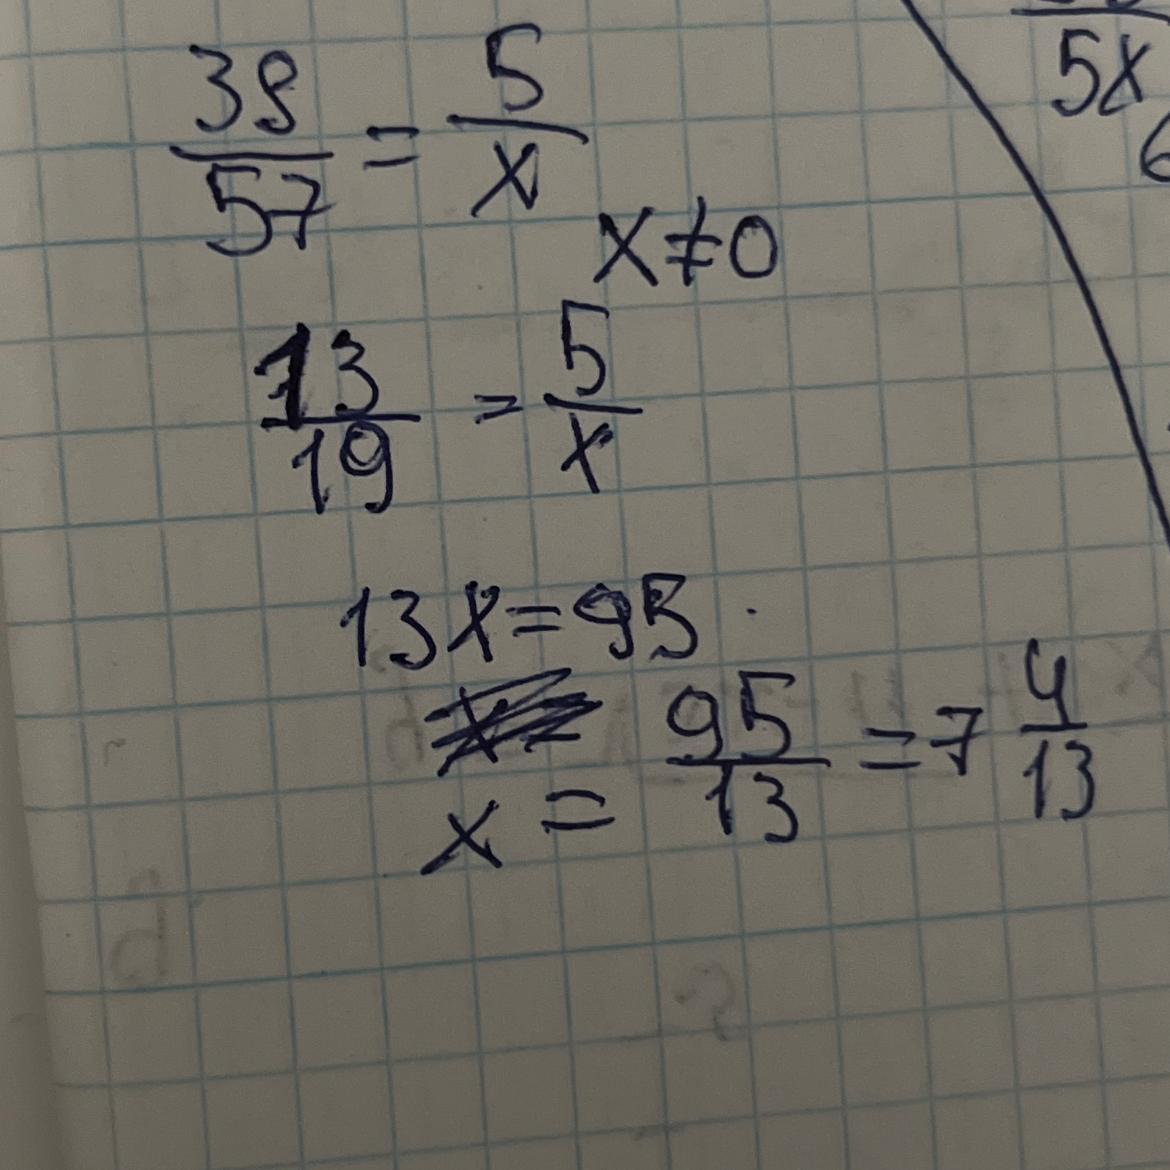 39/57 = 5/x
x≠0
13/19 = 5/x
13x=95
x = 95/13 = 7 4/13
5x
6